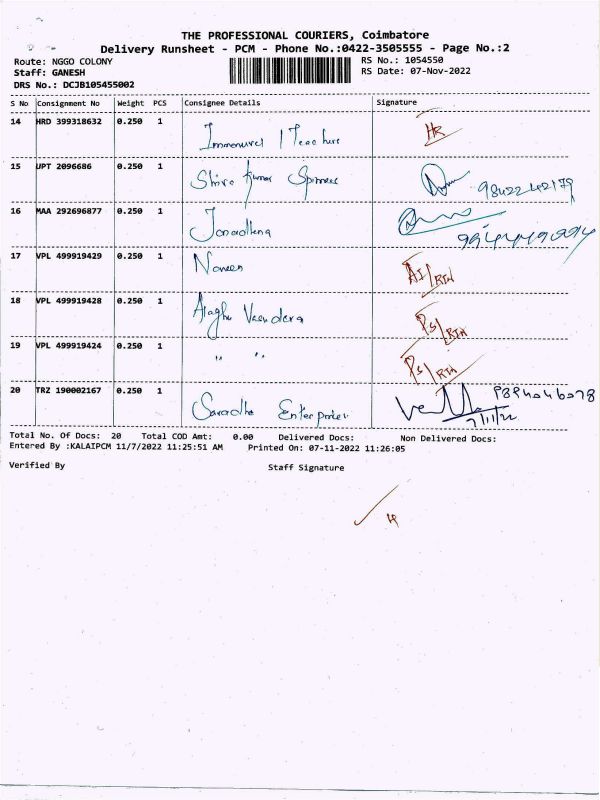 THE PROFESSIONAL COURIERS, Coimbatore
Delivery Runsheet - PCM - Phone No.:0422-3505555 - Page No.:2
Route: NGGO COLONY
RS No.: 1054550
Staff: GANESH
RS Date: 07-Nov-2022
DRS No.: DCJB105455002
S No Consignment No Weight PCS Consignee Details Signature
14 HRD 399318632 0.250 1
HR
15 JPT 2096686 0.250 1 Shiva Kumar Spinners 9842242179
16 MAA 292696877 0.250 1
17 VPL 499919429 0.250 1 Naveen
18 VPL 499919428 0.250 1 PS/RTN
19 VPL 499919424 0.250 1 " " PS/RTN
20 TRZ 190002167 0.250 1
7/11/22
Total No. Of Docs: 20 Total COD Amt: 0.00 Delivered Docs: Non Delivered Docs:
Entered By :KALAIPCM 11/7/2022 11:25:51 AM Printed On: 07-11-2022 11:26:05
Verified By Staff Signature